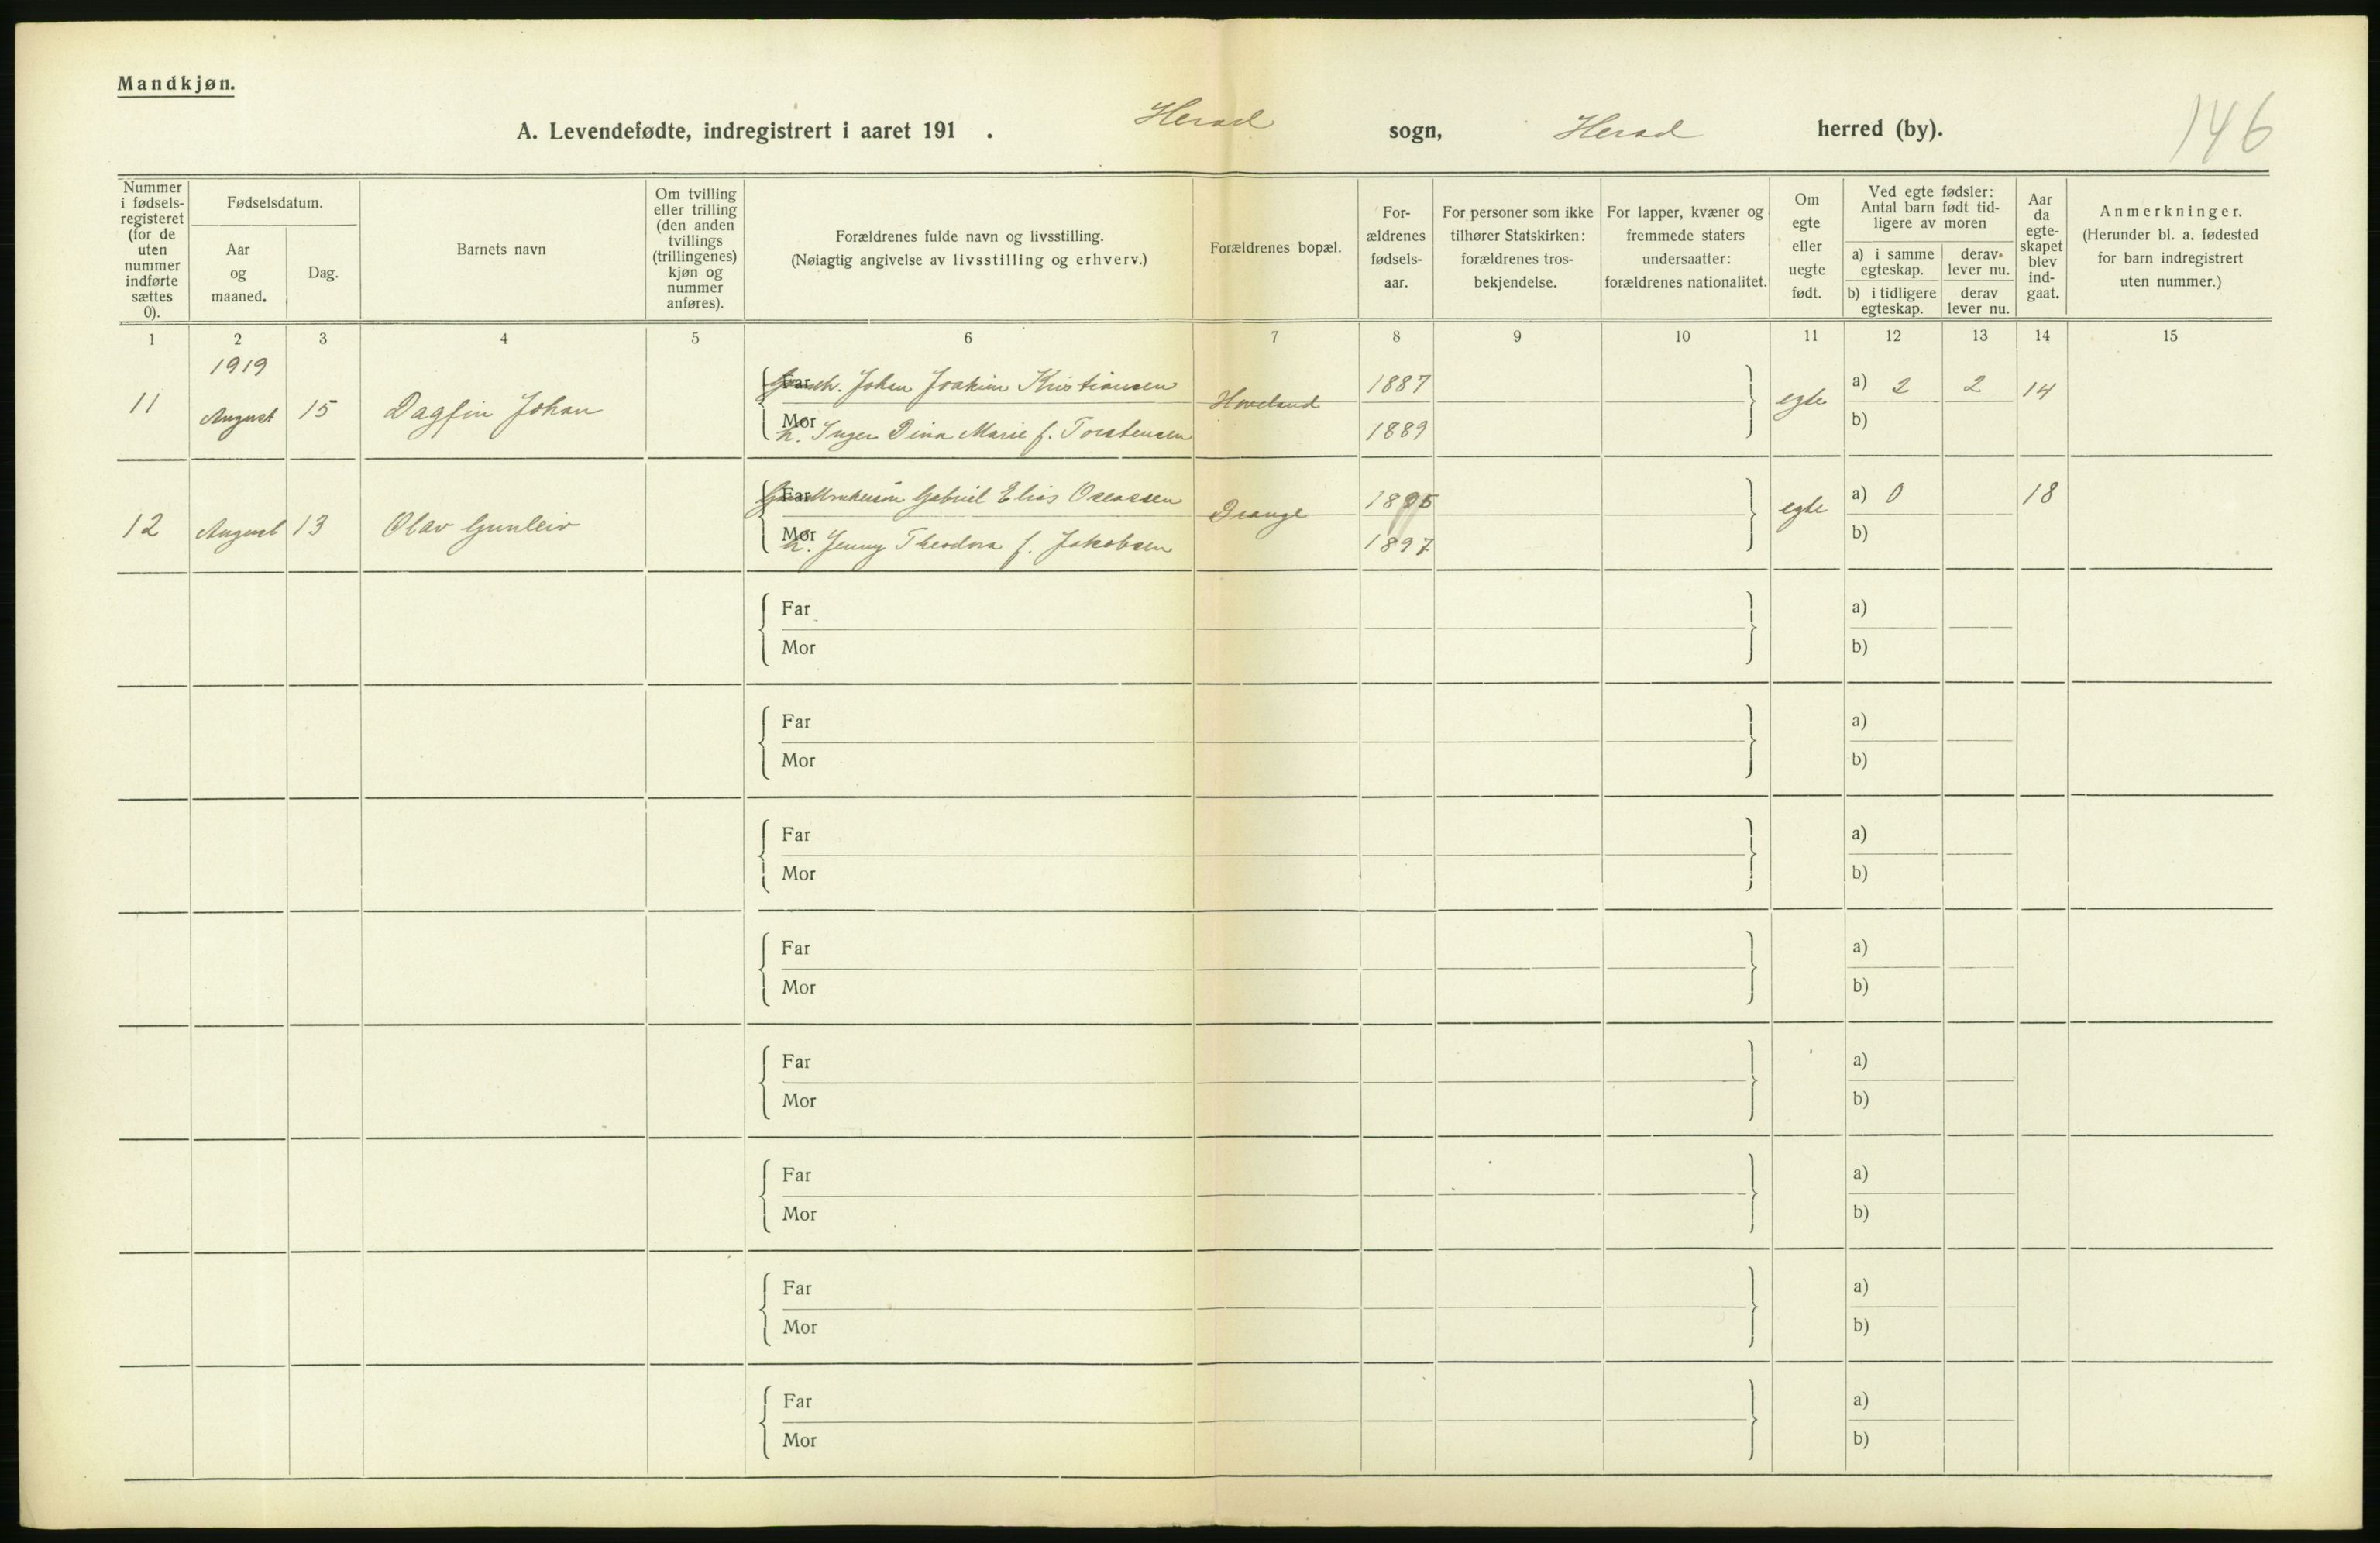 Mandkjøn.
A. Levendefødte, indregistrert i aaret 191 . Herad sogn, Herad herred (by).
146
Nummer i fødsels-registeret (for de uten nummer indførte sættes 0).
Fødselsdatum.
Aar og maaned.
Dag.
Barnets navn
Om tvilling eller trilling (den anden tvillings (trillingenes) kjøn og nummer anføres).
Forældrenes fulde navn og livsstilling.
(Nøiagtig angivelse av livsstilling og erhverv.)
Forældrenes bopæl.
For-ældrenes fødsels-aar.
For personer som ikke tilhører Statskirken: forældrenes tros-bekjendelse.
For lapper, kvæner og fremmede staters undersaatter: forældrenes nationalitet.
Om egte eller uegte født.
Ved egte fødsler: Antal barn født tid-ligere av moren
a) i samme egteskap.
derav lever nu.
b) i tidligere egteskap.
derav lever nu.
Aar da egte-skapet blev ind-gaat.
Anmerkninger.
(Herunder bl. a. fødested for barn indregistrert uten nummer.)
1 2 3 4 5 6 7 8 9 10 11 12 13 14 15
1919
11 August 15 Dagfin Johan Far Johan Joakim Kristiansen Hoveland 1887 egte a) 2 2 14
Mor h. Inger Dina Marie f. Torstensen 1889 b)
12 August 13 Olav Gunleiv Far Gabriel Elias Oseassen Drange 1895 egte a) 0 18
Mor h. Jenny Theodora f. Jakobsen 1897 b)
Far a)
Mor b)
Far a)
Mor b)
Far a)
Mor b)
Far a)
Mor b)
Far a)
Mor b)
Far a)
Mor b)
Far a)
Mor b)
Far a)
Mor b)